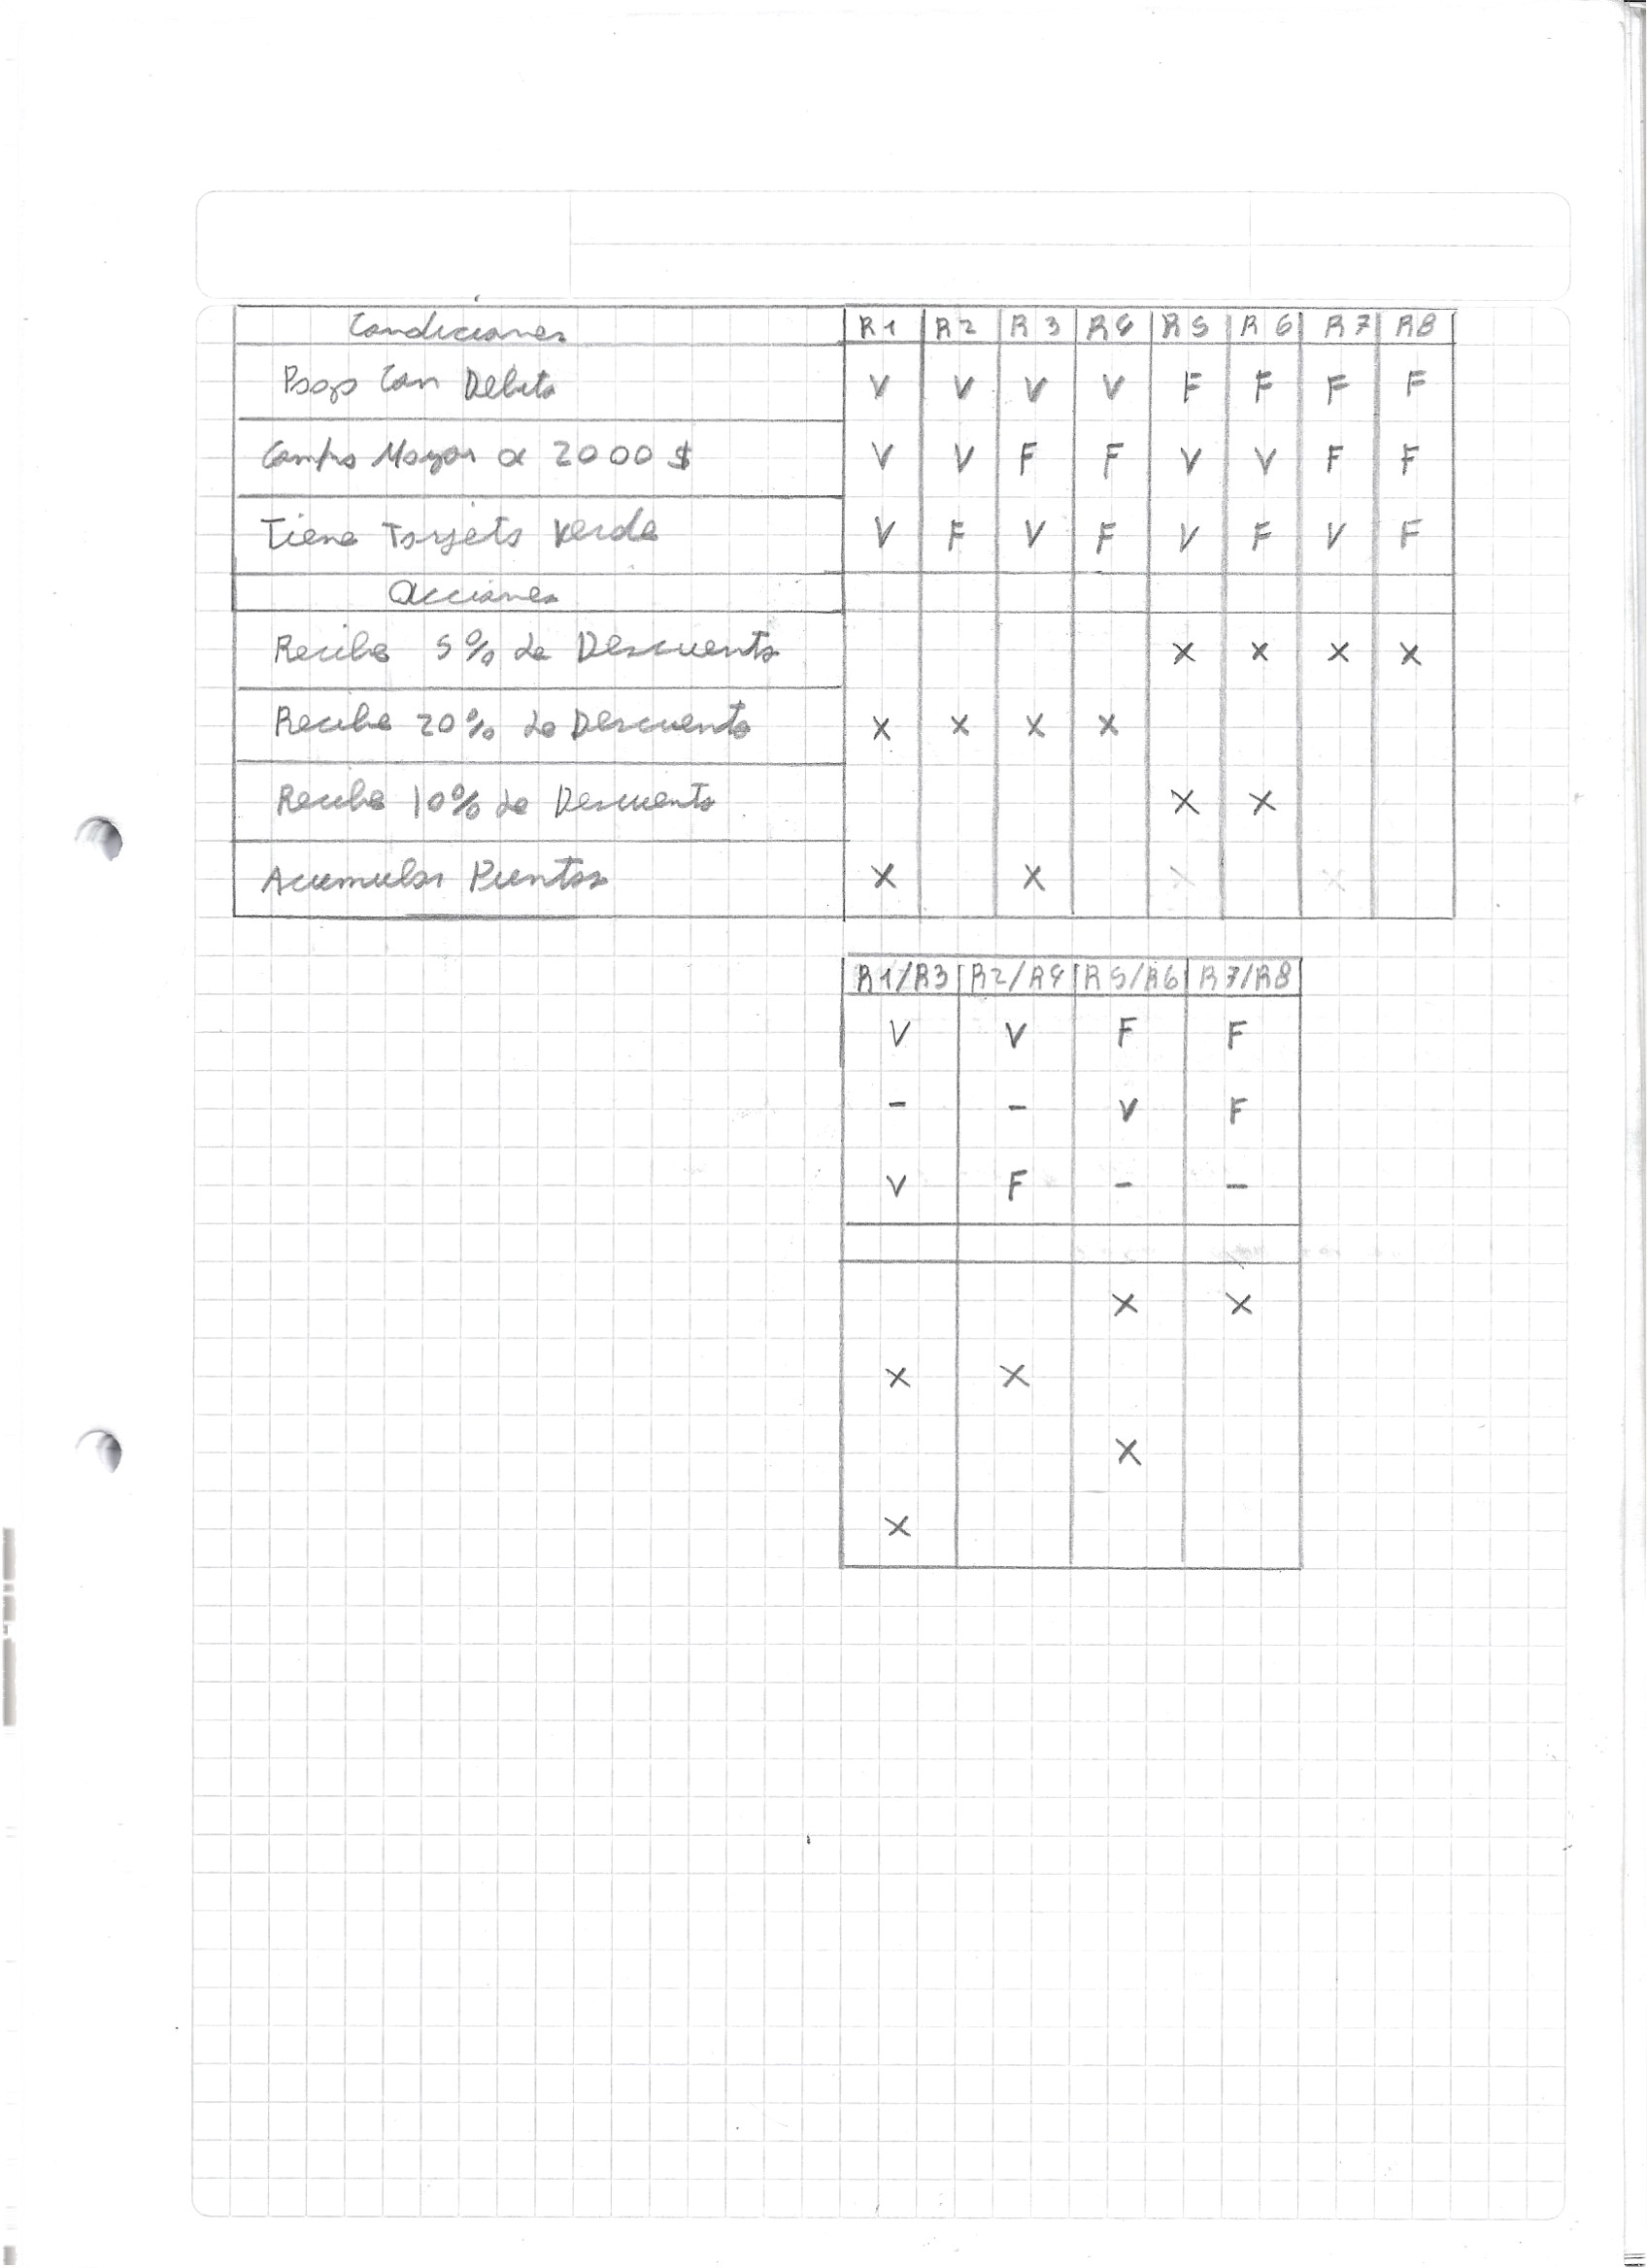 Condiciones R1 R2 R3 R4 R5 R6 R7 R8
Pago Con Debito V V V V F F F F
Compra Mayor a 2000 $ V V F F V V F F
Tiene Tarjeta Verde V F V F V F V F
Acciones
Recibe 5% de Descuento X X X X
Recibe 20% de Descuento X X X X
Recibe 10% de Descuento X X
Acumular Puntos X X
R1/R3 R2/R4 R5/R6 R7/R8
V V F F
- - V F
V F - -
X X
X X
X
X